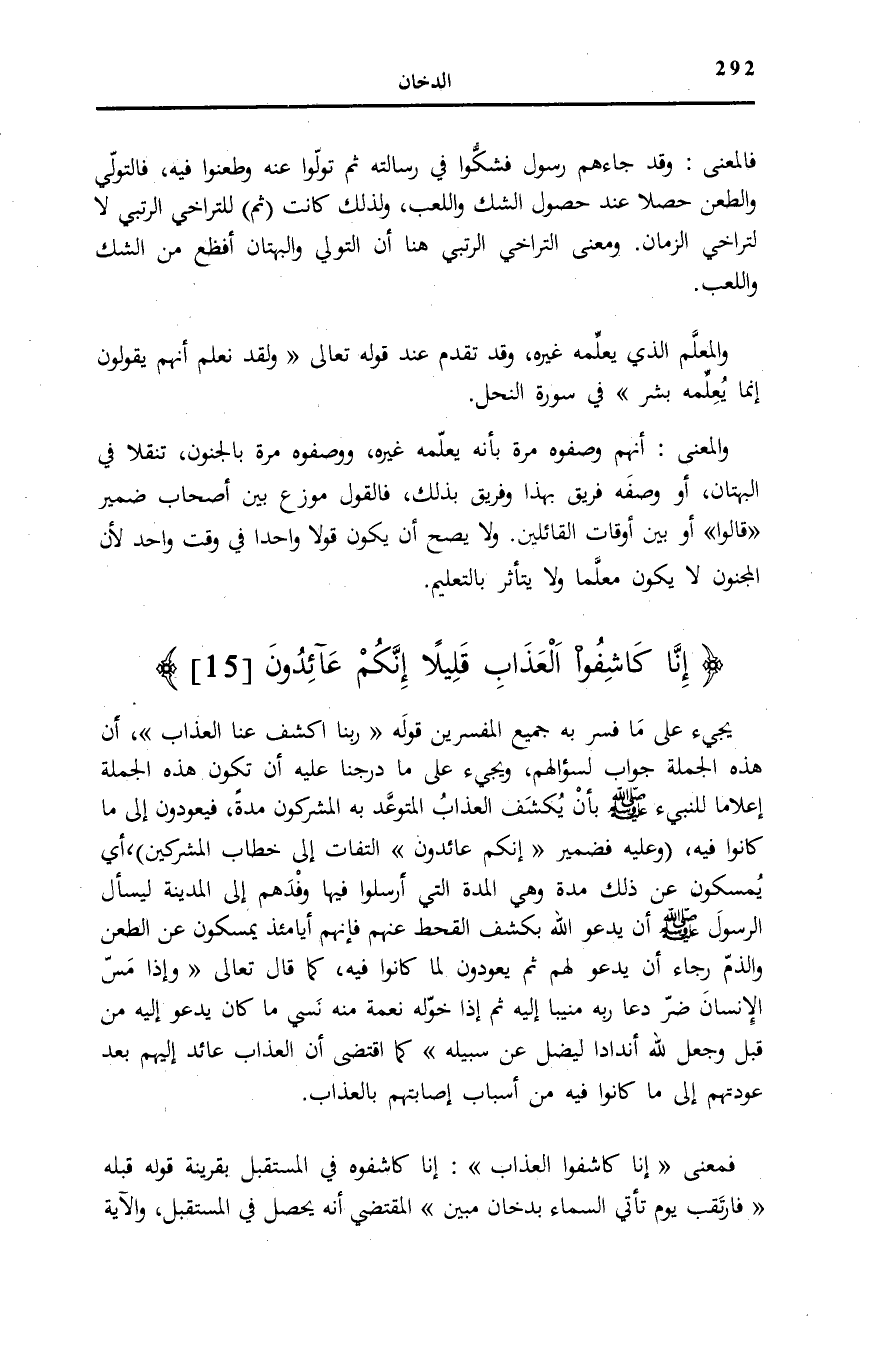 292
الدخان
فالمعنى : وقد جاءهم رسول فشكُّوا في رسالته ثم تولّوا عنه وطعنوا فيه، فالتولّي
والطعن حصلا عند حصول الشك واللعب، ولذلك كانت (ثم) للتراخي الرتبي لا
لتراخي الزمان. ومعنى التراخي الرتبي هنا أن التولي والبهتان أفظع من الشك
واللعب.
والمعلَّم الذي يعلِّمه غيره، وقد تقدم عند قوله تعالى « ولقد نعلم أنهم يقولون
إنما يُعِلِّمه بشر » في سورة النحل.
والمعنى : أنهم وصفوه مرة بأنه يعلّمه غيره، ووصفوه مرة بالجنون، تنقلا في
البهتان، أو وصفَه فريق بهذا وفريق بذلك، فالقول موزع بين أصحاب ضمير
«قالوا» أو بين أوقات القائلين. ولا يصح أن يكون قولا واحدا في وقت واحد لأن
المجنون لا يكون معلَّما ولا يتأثر بالتعليم.
﴿ إِنَّا كَاشِفُواْ اَلْعَذَابِ قَلِيلًا إِنَّكُمْ عَآئِدُونَ [15] ﴾
يجيء على مَا فسر به جميع المفسرين قولَه « ربنا اكشف عنا العذاب »، أن
هذه الجملة جواب لسؤالهم، ويجيء على ما درجنا عليه أن تكون هذه الجملة
إعلاما للنبيء ﷺ بأنْ يُكشَف العذابُ المتوعَّد به المشركون مدةً، فيعودون إلى ما
كانوا فيه، (وعليه فضمير « إنكم عائدون » التفات إلى خطاب المشركين)،أي
يُمسكون عن ذلك مدة وهي المدة التي أرسلوا فيها وفْدَهم إلى المدينة ليسأل
الرسولَ ﷺ أن يدعو الله بكشف القحط عنهم فإنهم أيامئذ يمسكون عن الطعن
والذمّ رجاء أن يدعو لهم ثم يعودون لما كانوا فيه، كما قال تعالى « وإذا مَسّ
الإِنسانَ ضرّ دعا ربه منيبا إليه ثم إذا خوّله نعمة منه نَسي ما كان يدعو إليه من
قبل وجعل لله أندادا ليضل عن سبيله » كما اقتضى أن العذاب عائد إليهم بعد
عودتهم إلى ما كانوا فيه من أسباب إصابتهم بالعذاب.
فمعنى « إنا كاشفوا العذاب » : إنا كاشفوه في المستقبل بقرينة قوله قبله
« فارتَقب يوم تأتي السماء بدخان مبين » المقتضي أنه يحصل في المستقبل، والآية